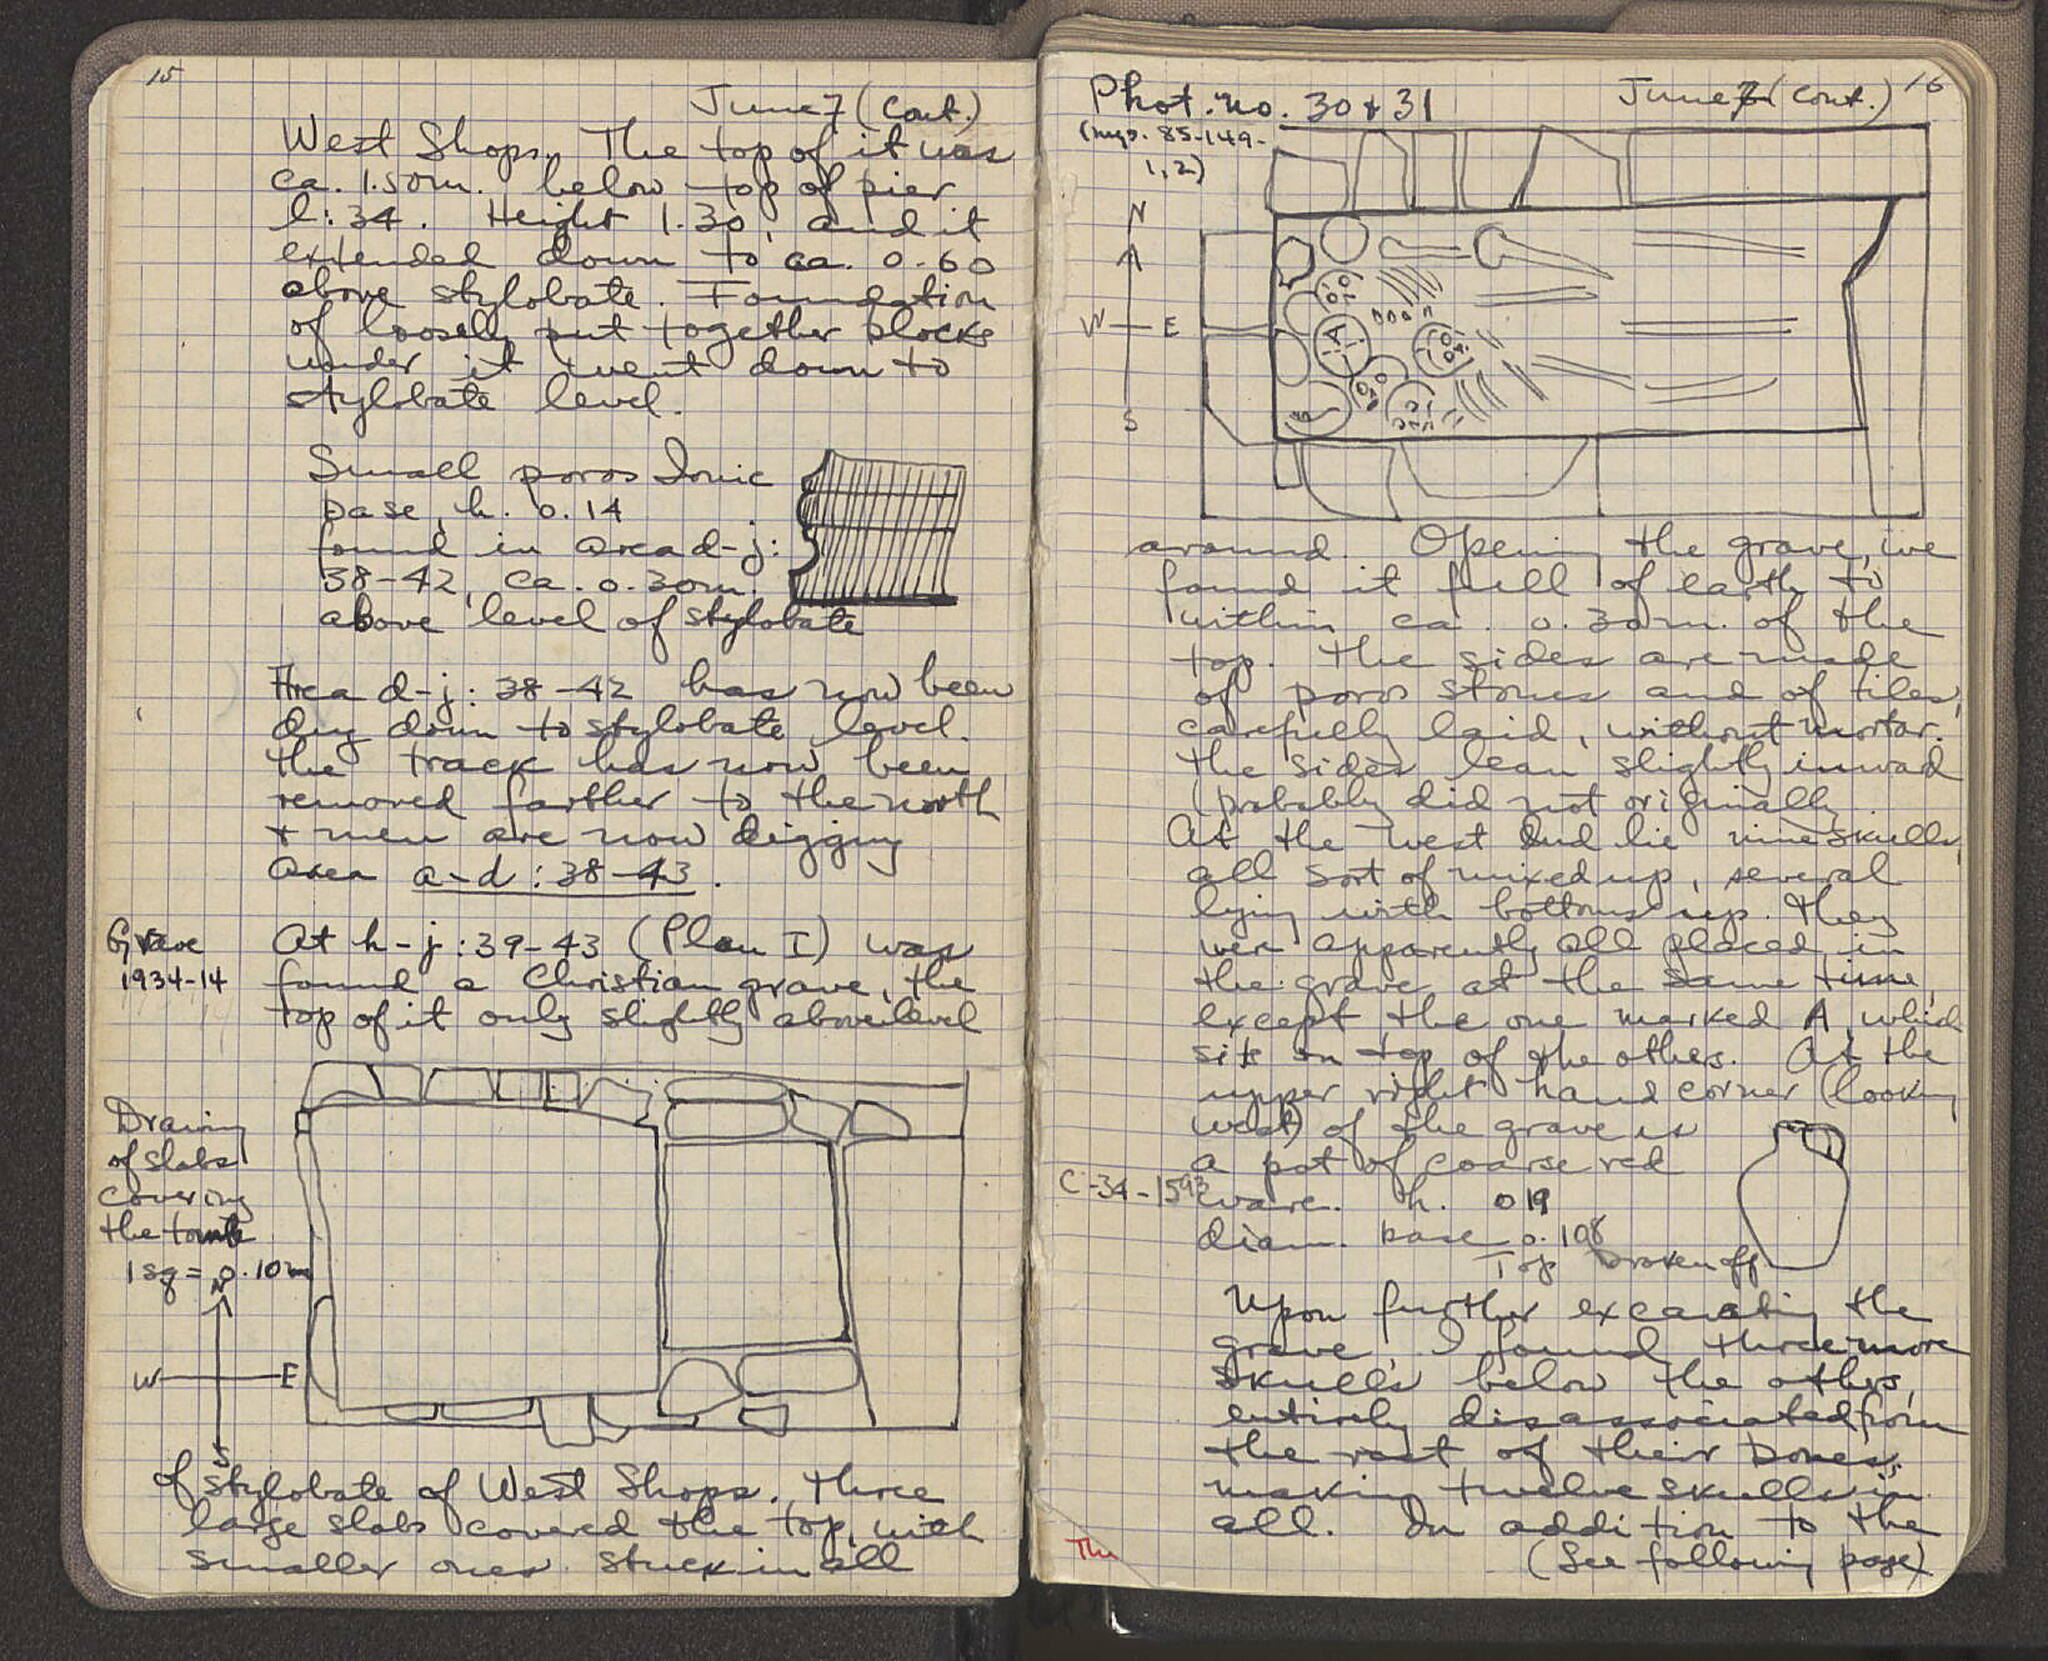 15
June 7 (Cont.)
West Shops. The top of it was
ca. 1.50m. below top of pier
l:34. Height 1.30, and it
extended down to ca. 0.60
above stylobate. Foundation
of loosely put together blocks
under it went down to
stylobate level.
Small poros Ionic
base, h. 0.14
found in area d-j:
38-42, ca. 0.30m.
above level of stylobate
Area d-j: 38-42 has now been
dug down to stylobate level.
The track has now been
removed farther to the north
+ men are now digging
area a-d:38-43.
Grave
1934-14
At h-j:39-43 (Plan I) was
found a Christian grave, the
top of it only slightly above level
Drawing
of slabs
covering
the tomb
1 sq = 0.10m
N
W E
S
of stylobate of West Shops. Three
large slabs covered the top, with
smaller ones stuck in all
16
Phot. no. 30 + 31 June 7 (cont.)
(negs. 85-149-
1,2)
N
W E
S
A
around. Opening the grave, we
found it full of earth to
within ca. 0.30m. of the
top. The sides are made
of poros stones and of tiles,
carefully laid, without mortar.
The sides lean slightly inward
(probably did not originally
At the west end lie nine skulls,
all sort of mixed up, several
lying with bottoms up. They
were apparently all placed in
the grave at the same time,
except the one marked A, which
sits on top of the others. At the
upper right hand corner (looking
west) of the grave is
a pot of coarse red
C-34-1593 ware. h. 0.19
diam. base 0.108
Top broken off
Upon further excavating the
grave, I found three more
skulls below the others,
entirely disassociated from
the rest of their bones,
making twelve skulls in
all. In addition to the
(See following page)
The